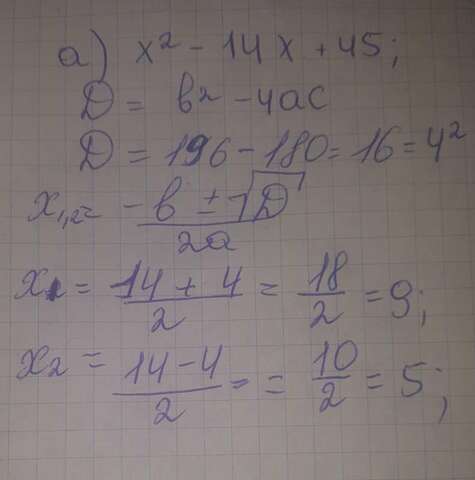 а) x² - 14x + 45;
D = b² - 4ac
D = 196 - 180 = 16 = 4²
x₁,₂ = (-b ± √D)/2a
x₁ = (14 + 4)/2 = 18/2 = 9;
x₂ = (14 - 4)/2 = = 10/2 = 5;